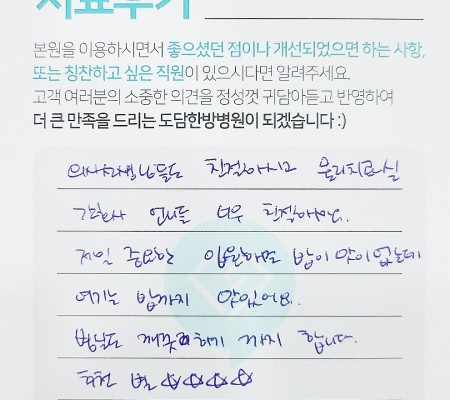 치료후기
본원을 이용하시면서 좋으셨던 점이나 개선되었으면 하는 사항,
또는 칭찬하고 싶은 직원이 있으시다면 알려주세요.
고객 여러분의 소중한 의견을 정성껏 귀담아듣고 반영하여
더 큰 만족을 드리는 도담한방병원이 되겠습니다 :)
의사선생님들도 친절하시고 물리치료실
간호사 언니들 너무 친절하세요.
제일 중요한 입원하면 밥이 맛이 없는데
여기는 밥까지 맛있어요.
병실도 깨끗하기 까지 합니다.
추천 별 ☆☆☆☆☆